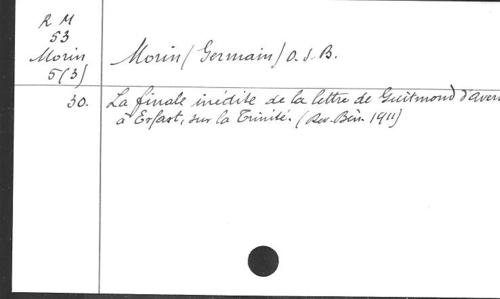 R M
53
Morin
5(3)
Morin (Germain) O. S. B.
30. La finale inédite de la lettre de Guitmond d'Avers
à Erfast, sur la Trinité. (Rev. Bén. 1911)